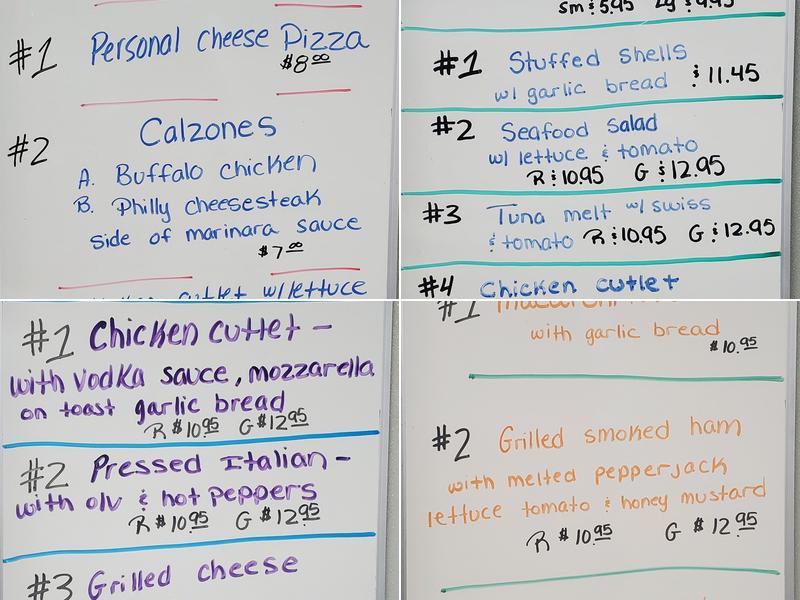 #1 Personal cheese Pizza
$8.00
#2 Calzones
A. Buffalo chicken
B. Philly cheesesteak
side of marinara sauce
$7.00
cutlet w/lettuce
Sm $5.95 Lg $9.95
#1 Stuffed Shells
w/ garlic bread $11.45
#2 Seafood Salad
w/ lettuce & tomato
R $10.95 G $12.95
#3 Tuna melt w/ swiss
& tomato R $10.95 G $12.95
#4 Chicken cutlet
#1 Chicken cutlet -
with vodka sauce, mozzarella
on toast garlic bread
R $10.95 G $12.95
#2 Pressed Italian -
with o/v & hot peppers
R $10.95 G $12.95
#3 Grilled cheese
#1
with garlic bread
$10.95
#2 Grilled smoked ham
with melted pepperjack
lettuce tomato & honey mustard
R $10.95 G $12.95